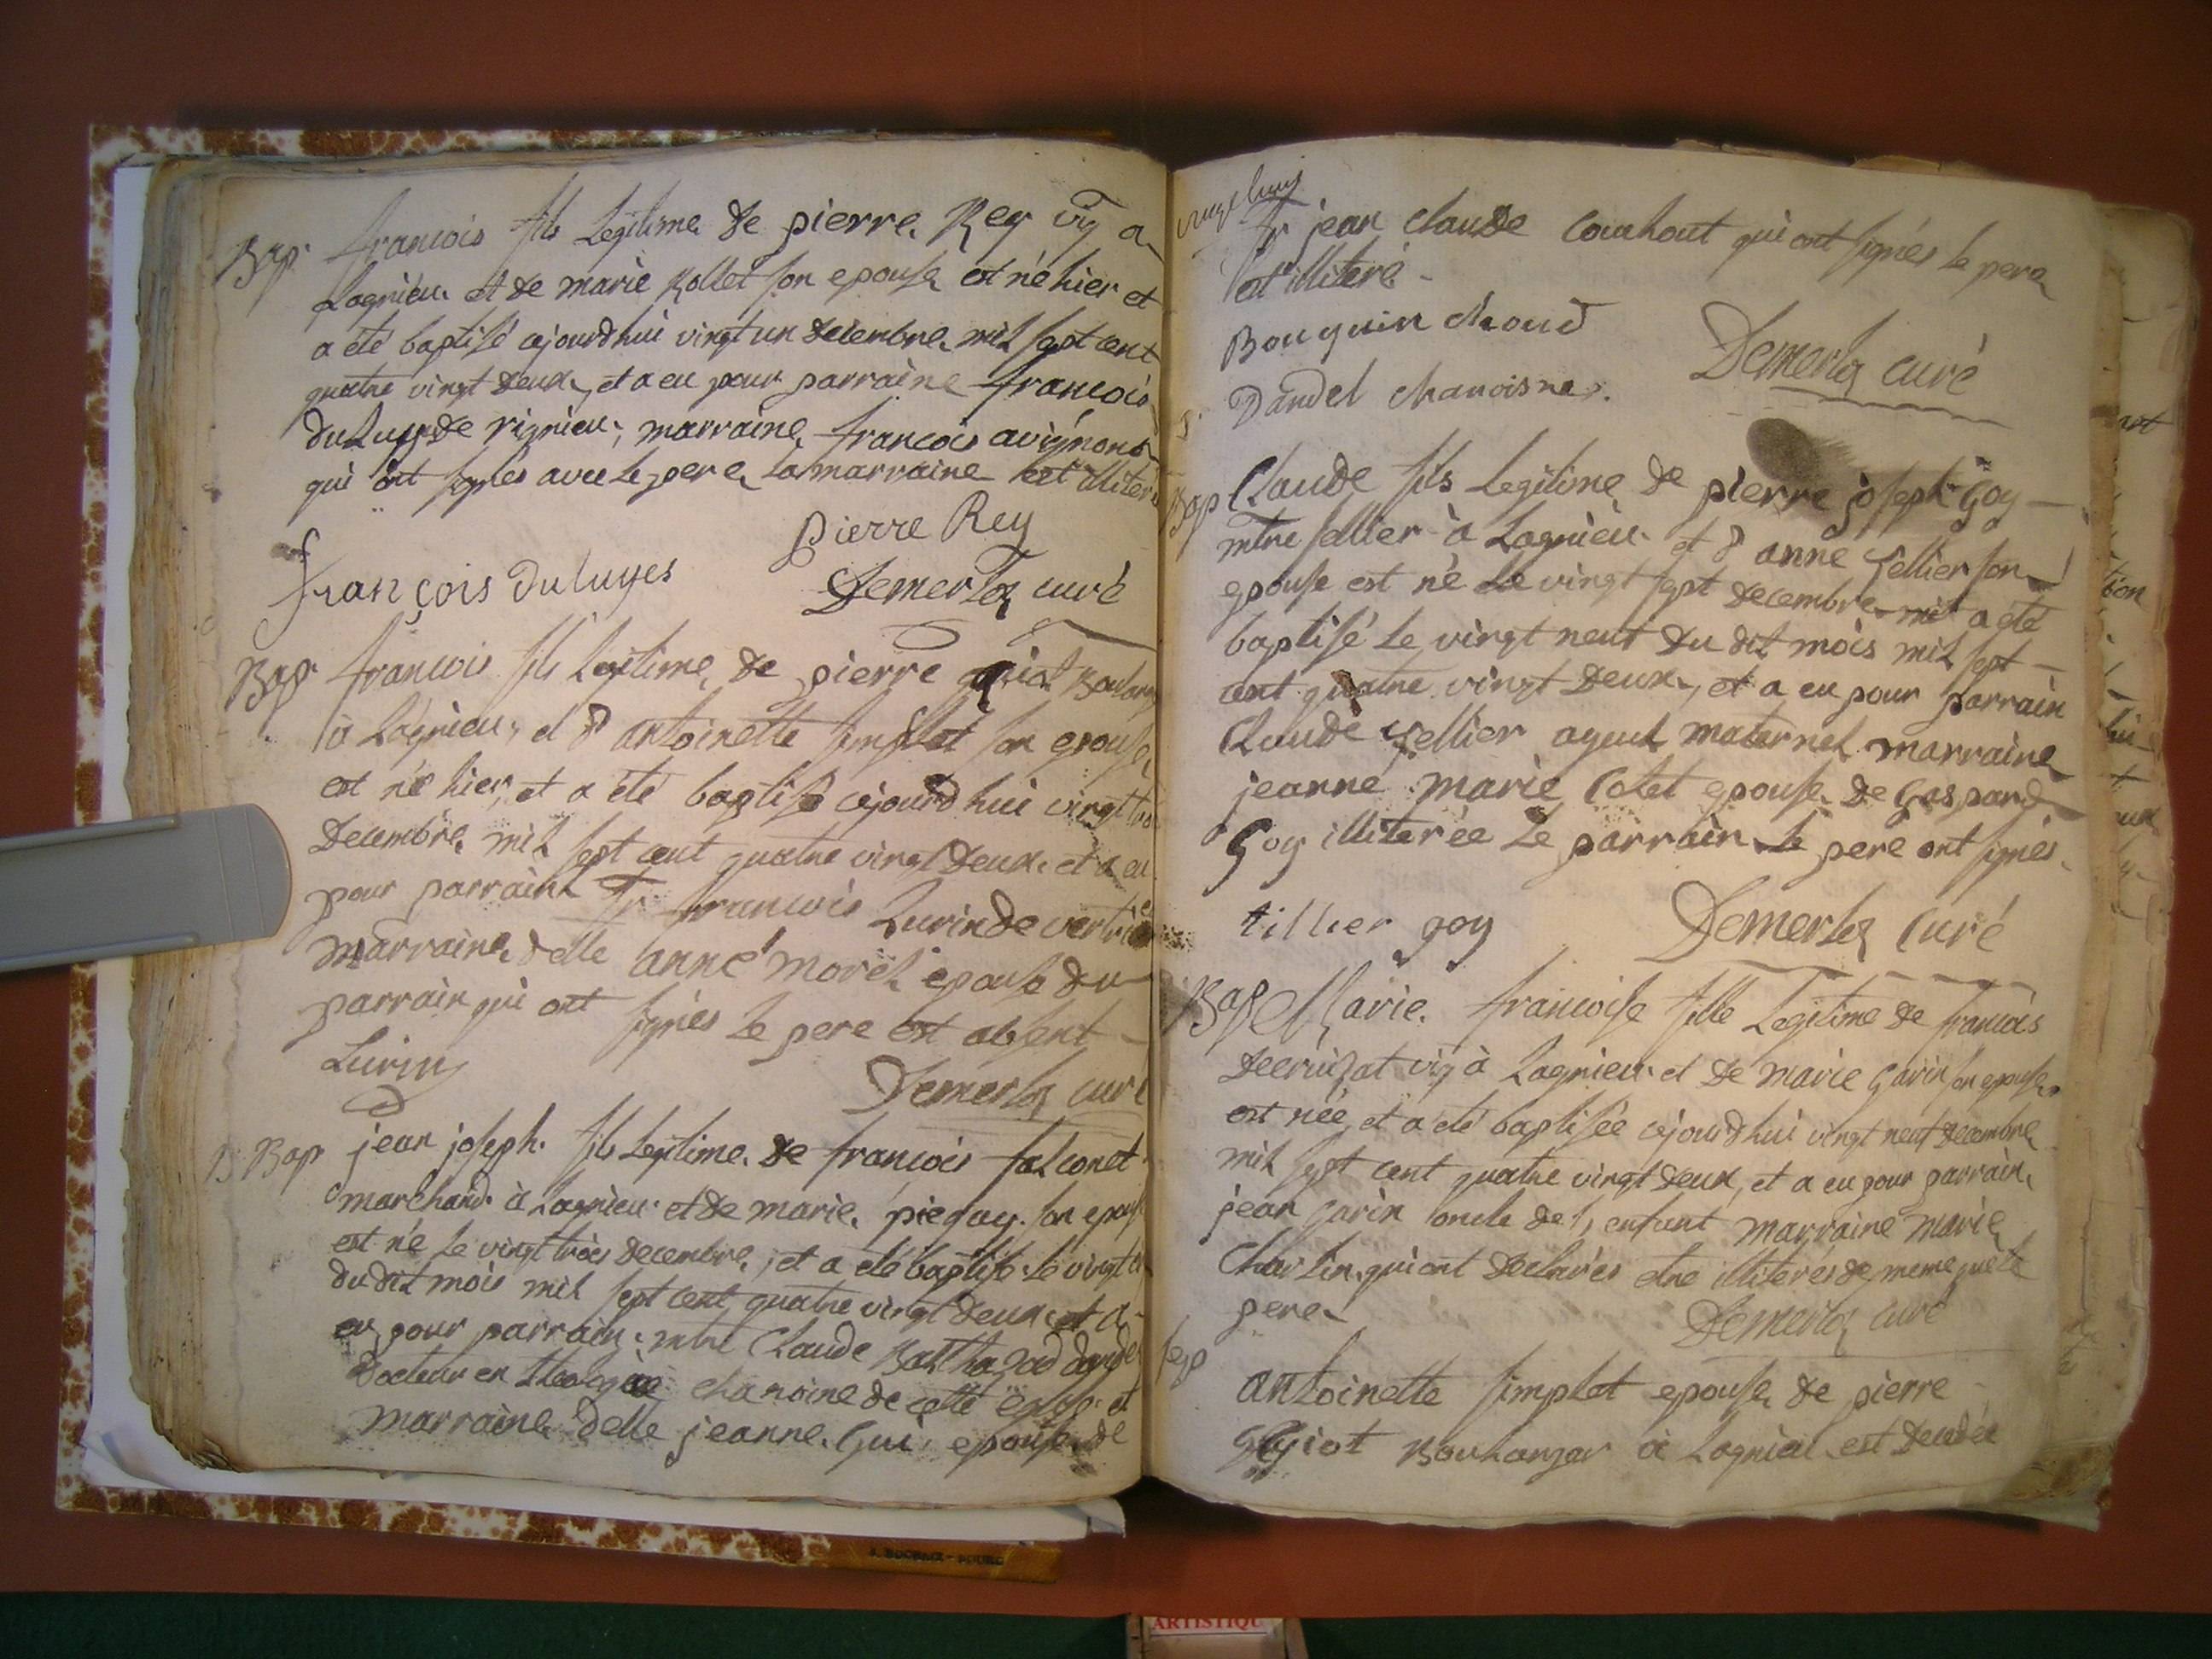 Bap francois fils Legitime de pierre Rey vig a
Lagnieu et de marie Rollet son epouse est né hier et
a été baptisé cejourdhui vingt un decembre mil sept cent
quatre vingt deux, et a eu pour parraine francois
duluys de rignieu, marraine francois avignont
qui ont signés avec le pere La marraine est illiter
pierre Rey
françois duluyes Demerloz curé
Bap francois fils legitime de pierre guiot Boulang
à Lagnieu, et d antoinette simplet son epouse
est né hier, et a été baptisé cejourdhui vingt troi
Decembre mil sept cent quatre vingt deux et a eu
pour parraint Sr francois Lurin de vertrieu
marraine delle anne morel epouse du
parrain qui ont signés le pere est absent
Lurin
Demerloz curé
Bap jean joseph fils Legitime de francois falconet
marchand à Lagnieu et de marie piegay son epouse
est né le vingt trois decembre, et a été baptisé le vingt
du dit mois mil sept cent quatre vingt deux et a
eu pour parrain mtre Claude Balthazad dandel
Docteur en theologie chanoine de cette eglise et
marraine delle jeanne Gui epouse de
Sr jean claude Couchout qui ont signés le pere
est illiteré
Bouquin choud
Demerloz curé
Dandel chanoisne
Bap Claude fils Legitime de pierre joseph Goy
mtre sellier à Lagnieu et d anne tellier son
epouse est né Le vingt sept decembre mil a été
baptisé le vingt neuf du dit mois mil sept
cent quatre vingt deux, et a eu pour parrain
Claude tellier ayeul maternel marraine
jeanne marie Colet epouse de Gaspard
Goy illiterée Le parrain Le pere ont signés
tillier goy Demerloz Curé
Bap Marie francoise fille Legitime de francois
Decruizat vig à Lagnieu et de marie Garin son epouse
est née, et a été baptisée cejourdhui vingt neuf decembre
mil sept cent quatre vingt deux, et a eu pour parrain
jean garin oncle de l, enfant marraine marie
Charlin qui ont declarés etre illiterés de meme que le
pere
Demerloz curé
sep
antoinette simplet epouse de pierre
guiot Boulanger à Lagnieu est decedée
ARTISTIQU